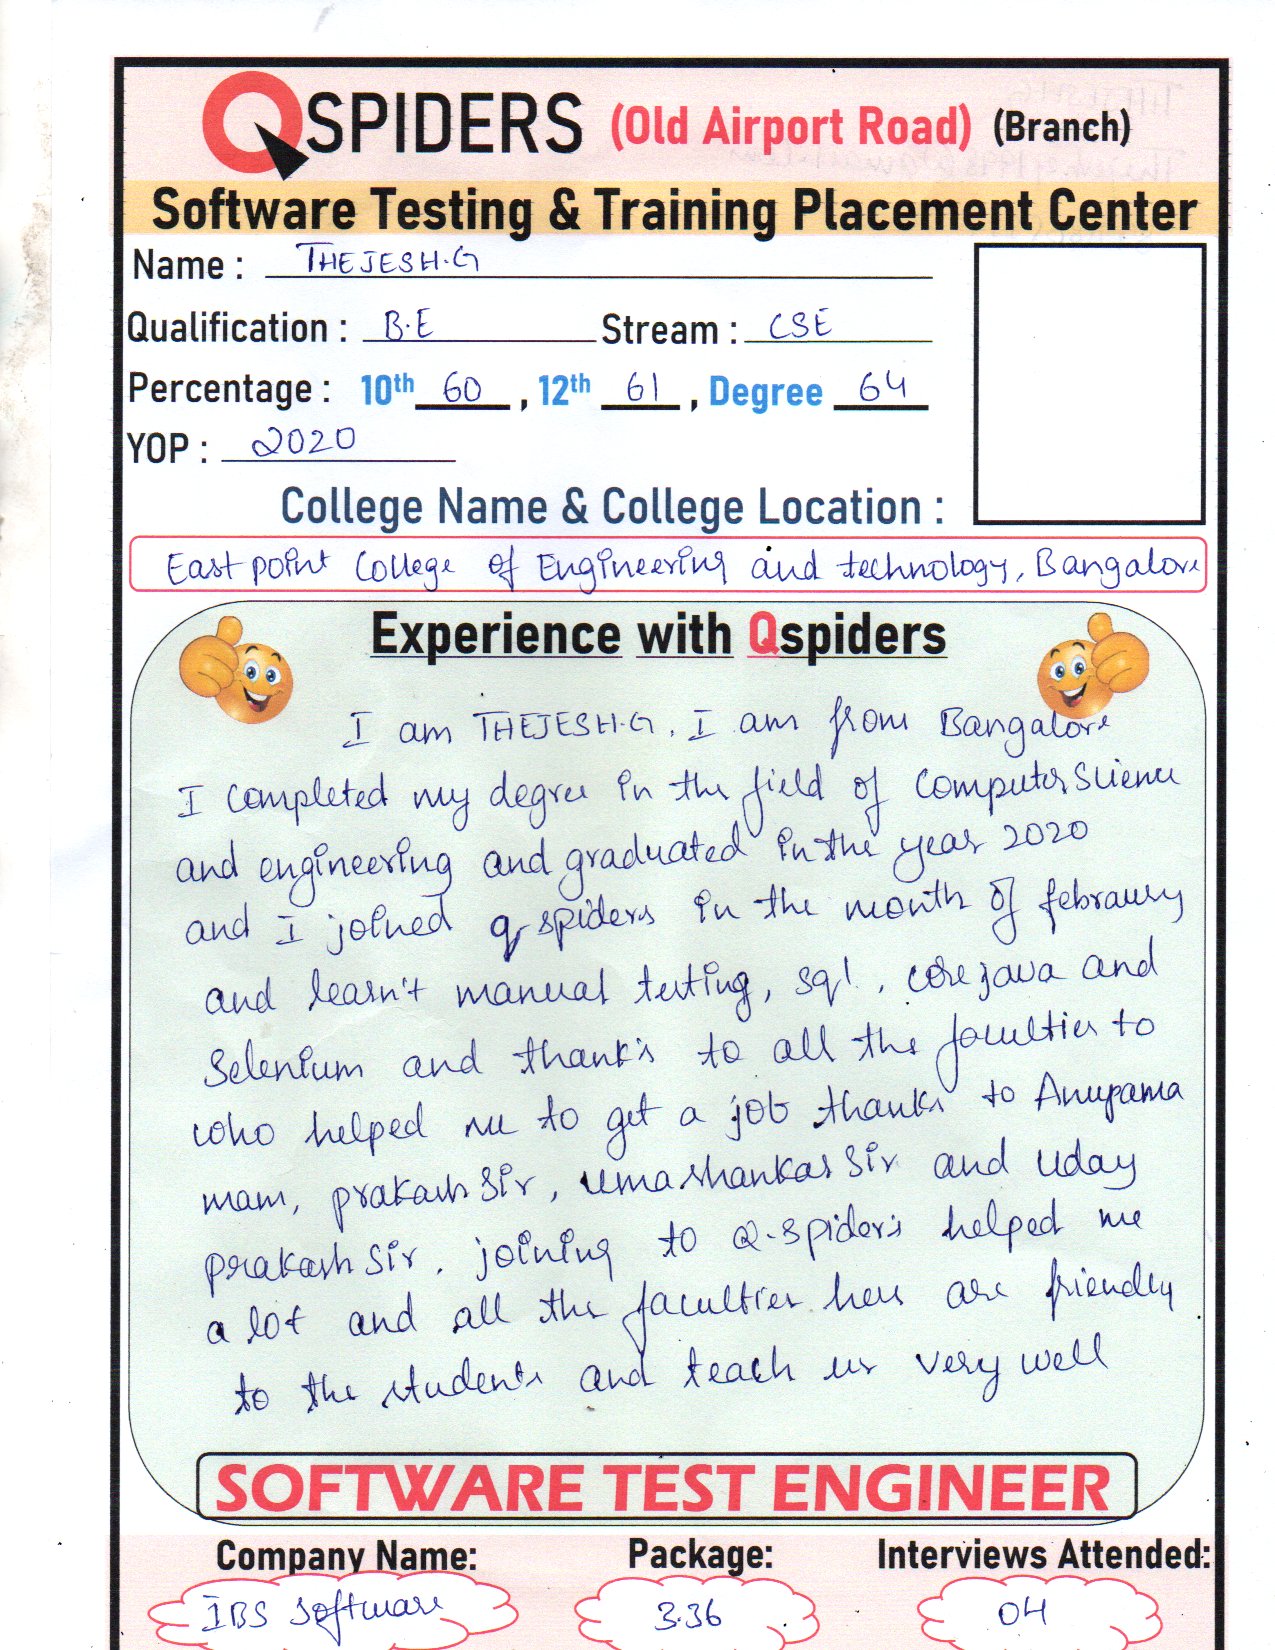 QSPIDERS (Old Airport Road) (Branch)
Software Testing & Training Placement Center
Name : THEJESH.G
Qualification : B.E Stream : CSE
Percentage : 10th 60 , 12th 61 , Degree 64
YOP : 2020
College Name & College Location :
East point College of Engineering and technology, Bangalore
Experience with Qspiders
I am THEJESH.G, I am from Bangalore
I completed my degree in the field of Computer Science
and engineering and graduated in the year 2020
and I joined q spiders in the month of febraury
and learn't manual testing, sql, core java and
Selenium and thank's to all the faculties to
who helped me to get a job thanks to Anupama
mam, prakash Sir, umashankar Sir and Uday
prakash Sir. joining to Q-spider's helped me
a lot and all the faculties here are friendly
to the students and teach us very well
SOFTWARE TEST ENGINEER
Company Name: Package: Interviews Attended:
IBS Software 3.36 04